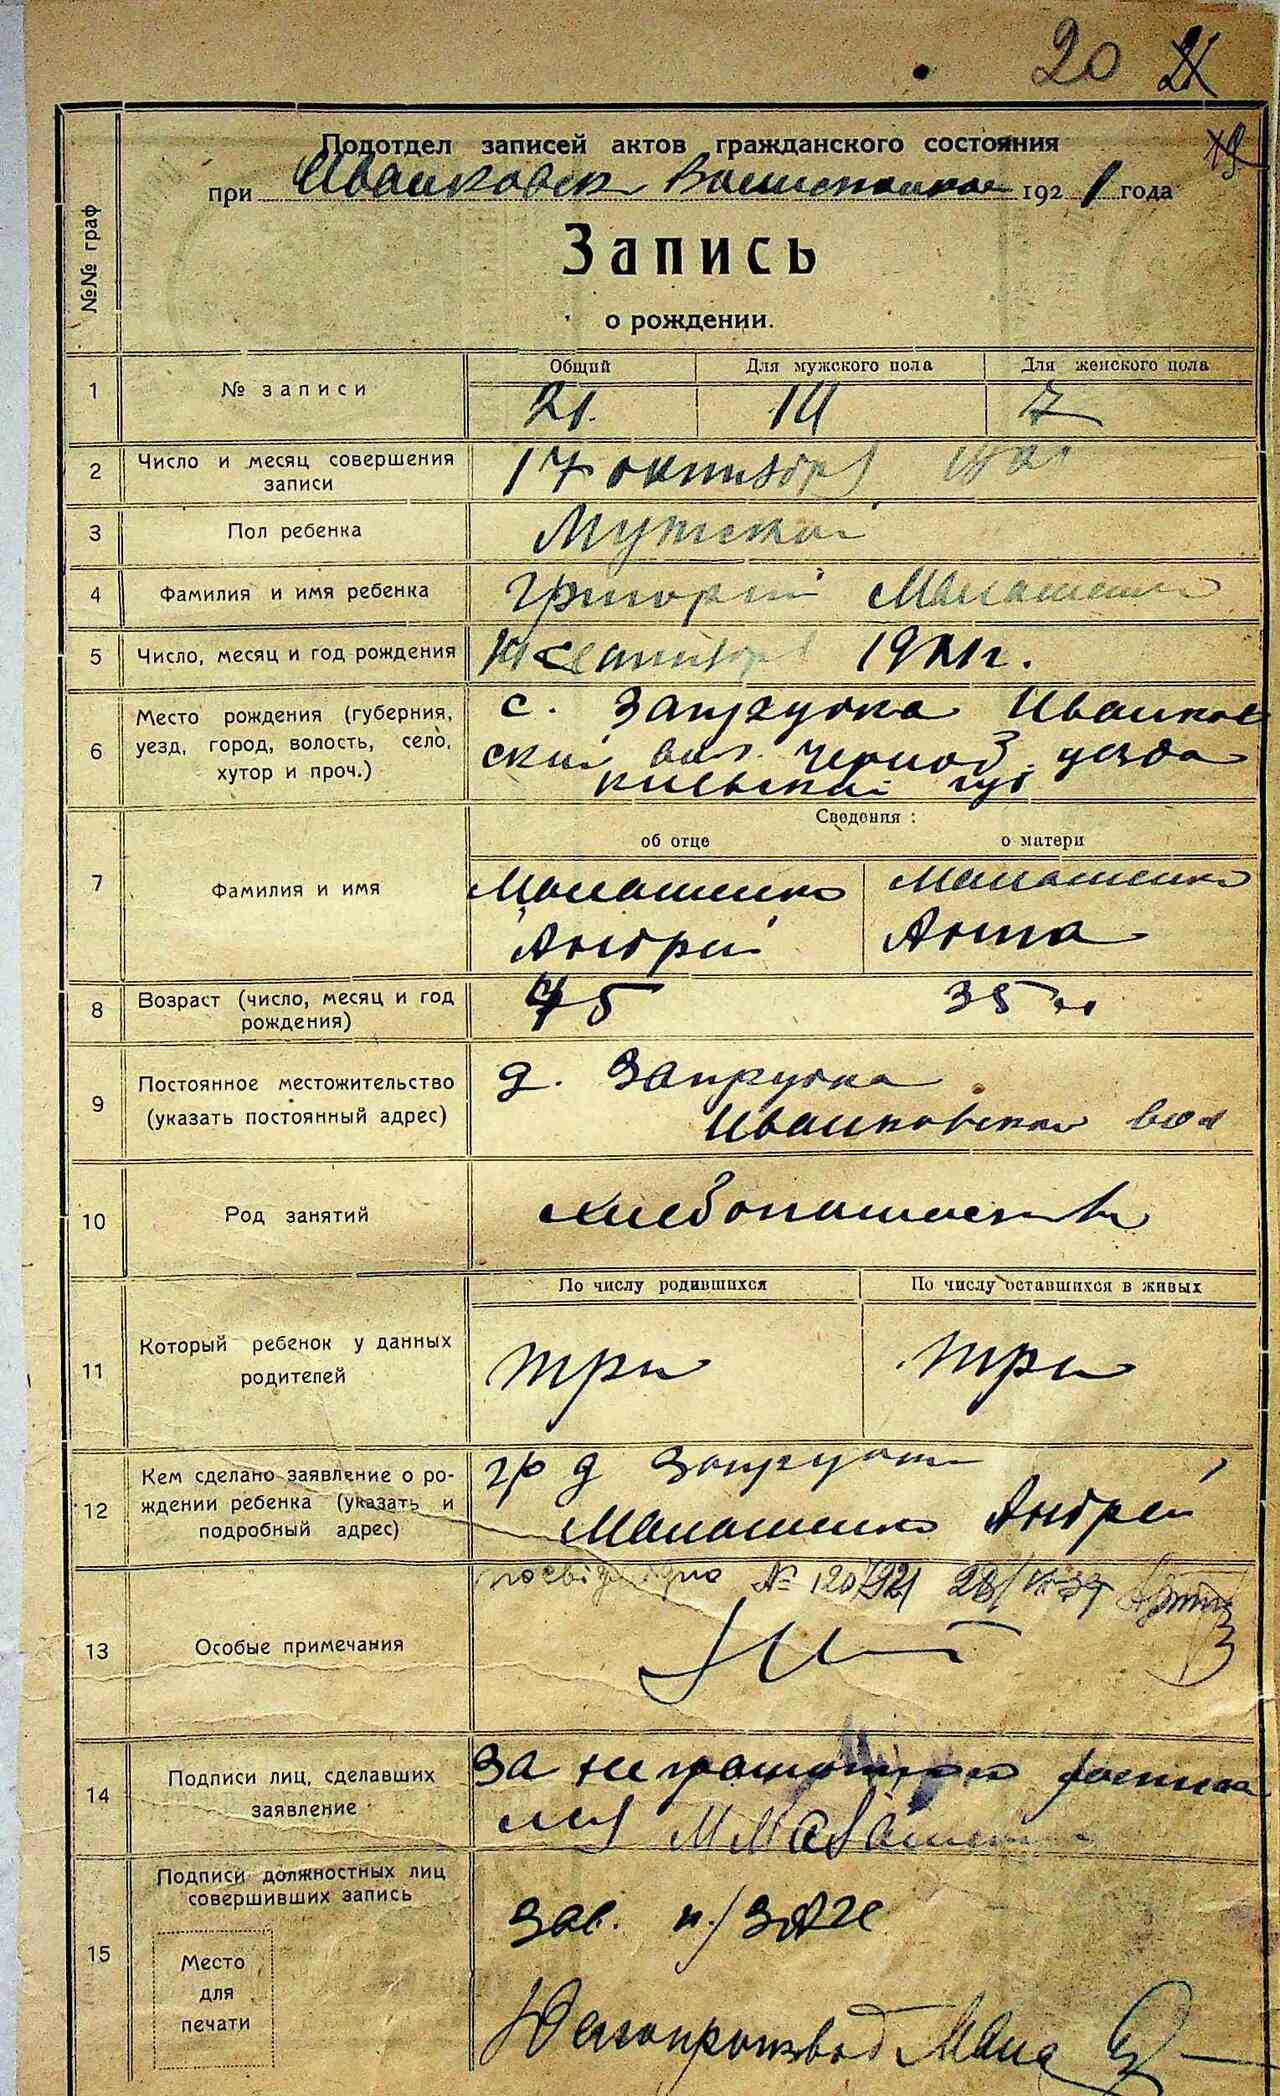 20 21
19
Подотдел записей актов гражданского состояния
при Иванковск Волисполкоме 1921 года
№№ граф
Запись
о рождении.
1 № записи
Общий Для мужского пола Для женского пола
21. 14 7
2 Число и месяц совершения записи
17 октября 1921
3 Пол ребенка
Мужской
4 Фамилия и имя ребенка
Григорий Манашенко
5 Число, месяц и год рождения
сентября 1921 г.
6 Место рождения (губерния, уезд, город, волость, село, хутор и проч.)
с. Запрудка Иванков
ский вол. Черноб. уезда
киевской губ
Сведения:
об отце о матери
7 Фамилия и имя
Манашенко Манашенко
Андрей Анна
8 Возраст (число, месяц и год рождения)
45 35
9 Постоянное местожительство (указать постоянный адрес)
д. Запрудка
Иванковской вол
10 Род занятий
хлебопашество
По числу родившихся По числу оставшихся в живых
11 Который ребенок у данных родителей
три три
12 Кем сделано заявление о рождении ребенка (указать и подробный адрес)
гр д Запрудки
Манашенко Андрей
13 Особые примечания
№ 120792
14 Подписи лиц, сделавших заявление
За неграмотного расписа
лся
15 Подписи должностных лиц совершивших запись
Зав. п/ЗАГС
Делопроизвод
Место
для
печати